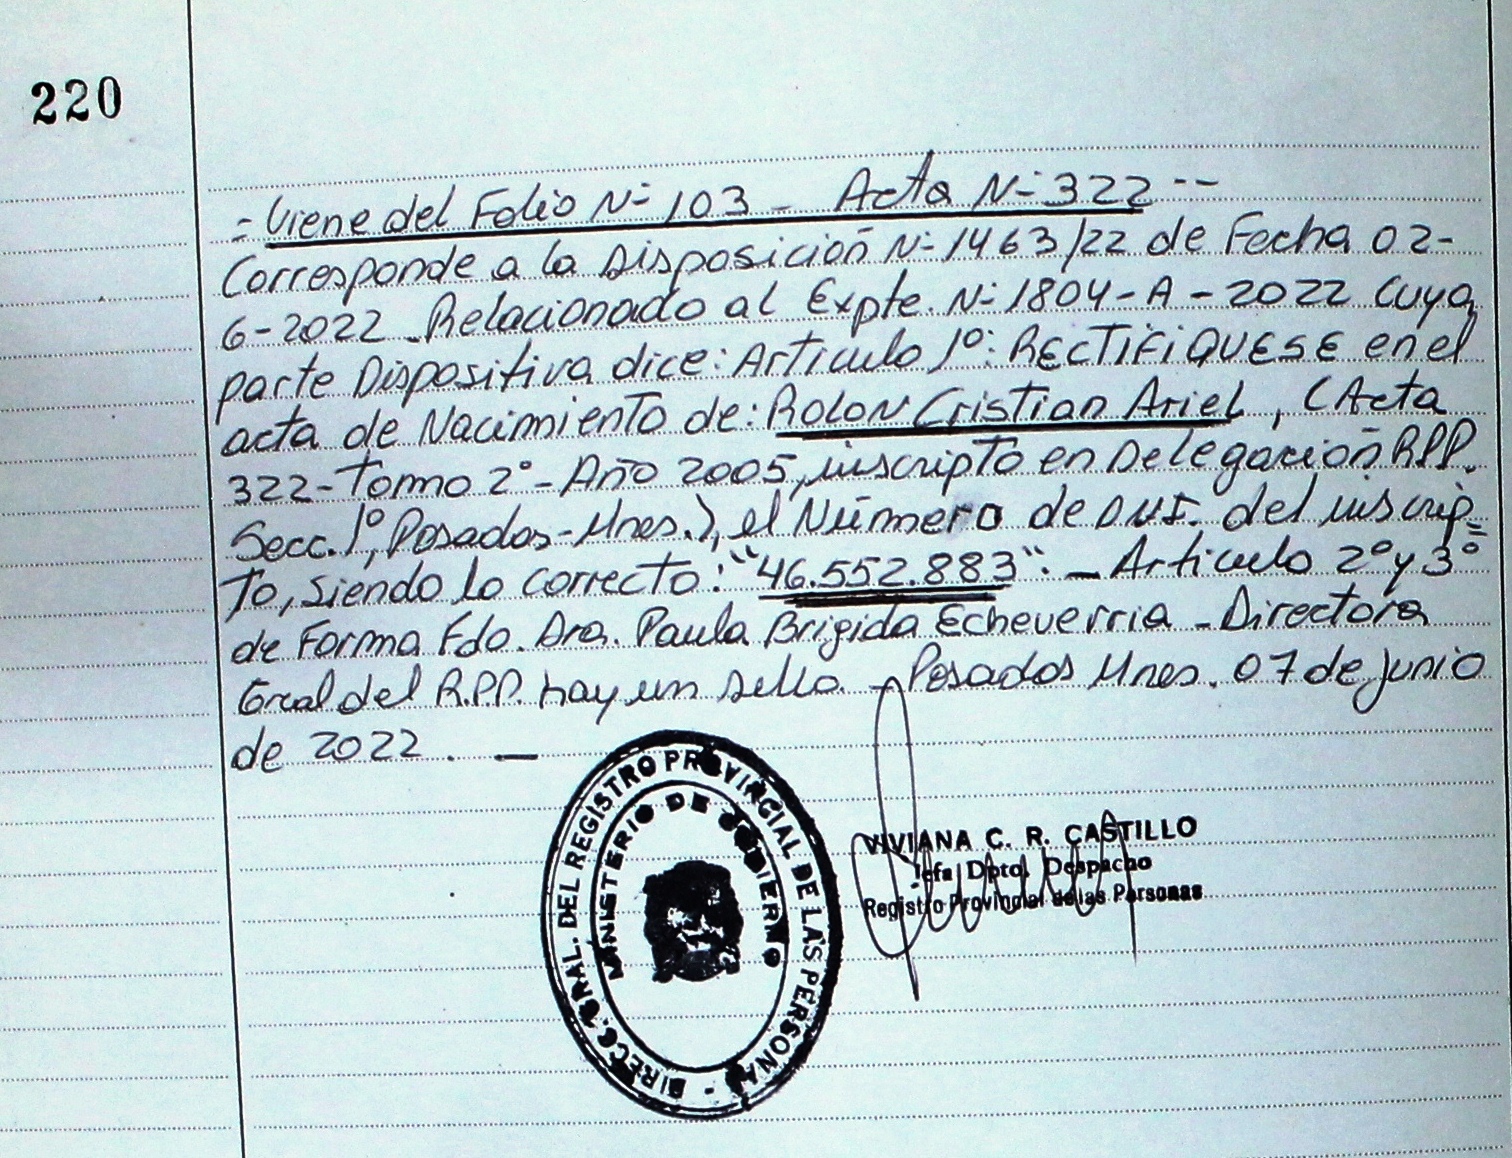 220
= Viene del Folio Nº 103 - Acta Nº 322 --
Corresponde a la Disposición Nº 1463/22 de Fecha 02-
6-2022. Relacionado al Expte. Nº 1804-A-2022 cuya
parte Dispositiva dice: Articulo 1º: RECTIFIQUESE en el
acta de Nacimiento de: ROLON Cristian Ariel, (Acta
322-Tomo 2º- Año 2005, inscripto en Delegación RPP.
Secc. 1º, Posadas-Mnes.), el Número de DNI. del inscrip=
to, siendo lo correcto: "46.552.883". _ Articulo 2º y 3º
de Forma Fdo. Dra. Paula Brigida Echeverria - Directora
Gral del R.P.P. hay un sello. - Posadas Mnes. 07 de junio
de 2022. —
DIRECC. GRAL. DEL REGISTRO PROVINCIAL DE LAS PERSONAS -
MINISTERIO DE GOBIERNO
VIVIANA C. R. CASTILLO
Jefa Dpto. Despacho
Registro Provincial de las Personas